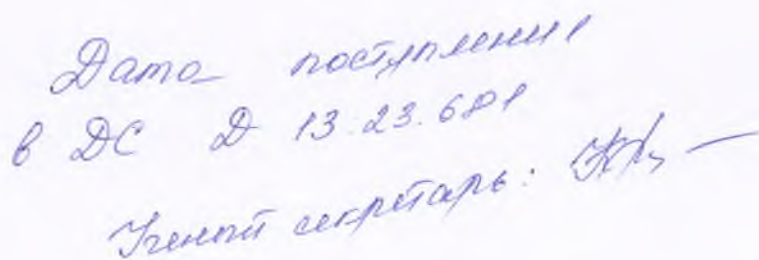 Дата поступления
в ДС Д 13.23.681
Ученый секретарь: